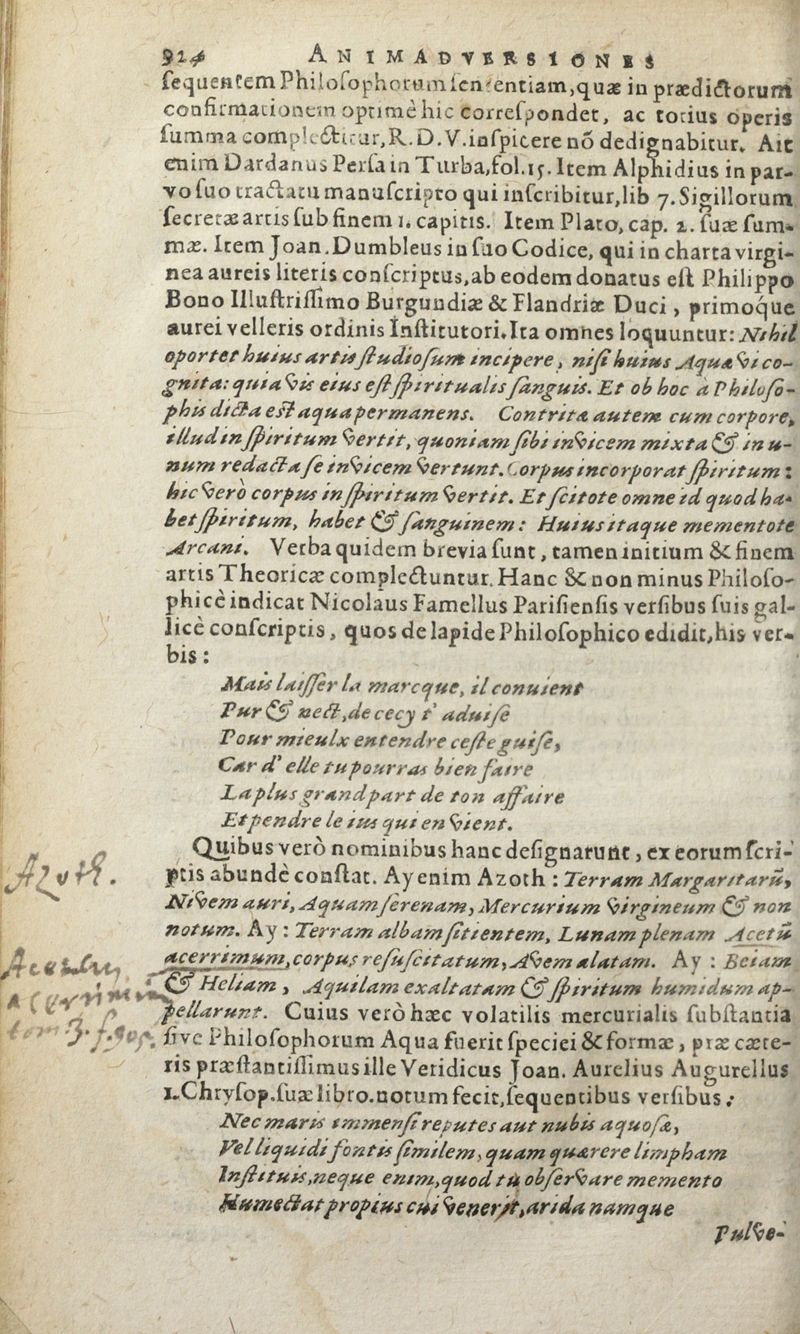 924 ANIMADVERSIONES
sequentem Philosophorum sententiam, quæ in prædictorum
confirmationem optimè hic correspondet, ac totius operis
summa complectitur, R.D.V. inspicere nō dedignabitur. Ait
enim Dardanus Persa in Turba, fol. 15. Item Alphidius in par-
vo suo tractatu manuscripto qui inscribitur, lib 7. Sigillorum
secretæ artis sub finem 1. capitis. Item Plato, cap. 2. suæ sum-
mæ. Item Joan. Dumbleus in suo Codice, qui in charta virgi-
nea aureis literis conscriptus, ab eodem donatus est Philippo
Bono Illustrissimo Burgundiæ & Flandriæ Duci, primoque
aurei velleris ordinis Institutori. Ita omnes loquuntur: Nihil
oportet huius artis studiosum incipere, nisi huius Aquæ vi co-
gnita: quia vis eius est spiritualis sanguis. Et ob hoc à Philoso-
phis dicta est aqua permanens. Contrita autem cum corpore,
illud in spiritum vertit, quoniam sibi invicem mixta & in u-
num redacta se invicem vertunt. Corpus incorporat spiritum:
hic verò corpus in spiritum vertit. Et scitote omne id quod ha-
bet spiritum, habet & sanguinem: Huius itaque mementote
Arcani. Verba quidem brevia sunt, tamen initium & finem
artis Theoricæ complectuntur. Hanc & non minus Philoso-
phicè indicat Nicolaus Famellus Parisiensis versibus suis gal-
licè conscriptis, quos de lapide Philosophico edidit, his ver-
bis:
Mais laisser la marcque, il conuient
Pur & nect, de cecy t' aduise
Pour mieulx entendre ceste guise,
Car d' elle tu pourras bien faire
La plus grand part de ton affaire
Et pendre le ius qui en vient.
Quibus verò nominibus hanc designarunt, ex eorum scri-
ptis abundè constat. Ay enim Azoth: Terram Margaritarū,
Nivem auri, Aquam serenam, Mercurium virgineum & non
notum. Ay: Terram albam sitientem, Lunam plenam Acetū
acerrimum, corpus resuscitatum, Avem alatam. Ay: Beiam
& Heliam, Aquilam exaltatam & spiritum humidum ap-
pellarunt. Cuius verò hæc volatilis mercurialis substantia
sive Philosophorum Aqua fuerit speciei & formæ, præ cæte-
ris præstantissimus ille Veridicus Joan. Aurelius Augurellus
1. Chrysop. suæ libro. notum fecit, sequentibus versibus:
Nec maris immensi reputes aut nubis aquosæ,
Vel liquidi fontis similem, quam quærere limpham
Instituis, neque enim, quod tu observare memento
Humectat propius cui venerit, arida namque
Pulve-
Acetum
acerrimum